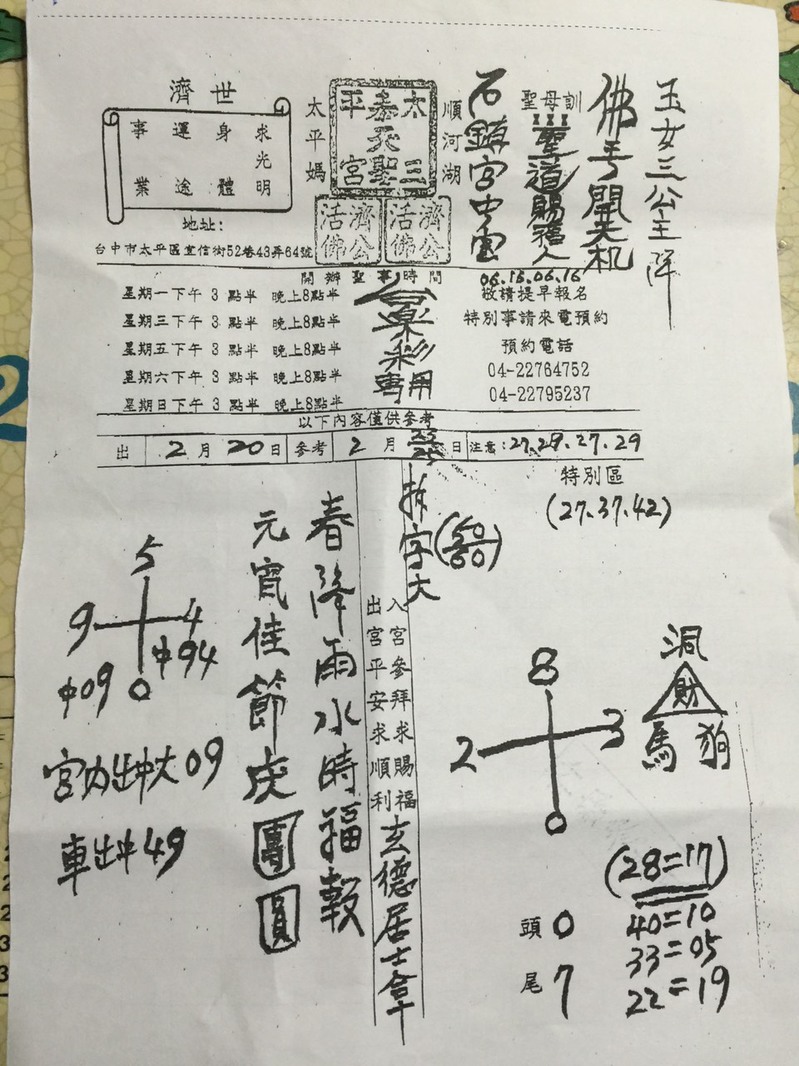 玉女三公主降
佛手開天机
聖母訓
聖道賜福人
石鎮宮中宙
順河湖
太三
泰天聖
平宮
太平媽
濟公活佛
濟公活佛
濟世
求光明
身體
運途
事業
地址:
台中市太平區宜信街52巷43弄64號
開辦聖事時間
星期一下午 3 點半 晚上8點半
星期三下午 3 點半 晚上8點半
星期五下午 3 點半 晚上8點半
星期六下午 3 點半 晚上8點半
星期日下午 3 點半 晚上8點半
合樂彩專用
06.15.06.16
敬請提早報名
特別事請來電預約
預約電話
04-22764752
04-22795237
以下內容僅供參考
出 2月20日 參考 2月 日 注意:27.29.27.29
特別區
(27.37.42)
拆字大
(50
60)
入宮參拜求賜福
出宮平安求順利
玄德居士拿
春降雨水時福報
元宵佳節慶團圓
5
9 4
0
中09
中94
宮內出中大09
車出中49
8
2 3
0
洞
財
馬 狗
(28=17)
40=10
33=05
22=19
頭 0
尾 7